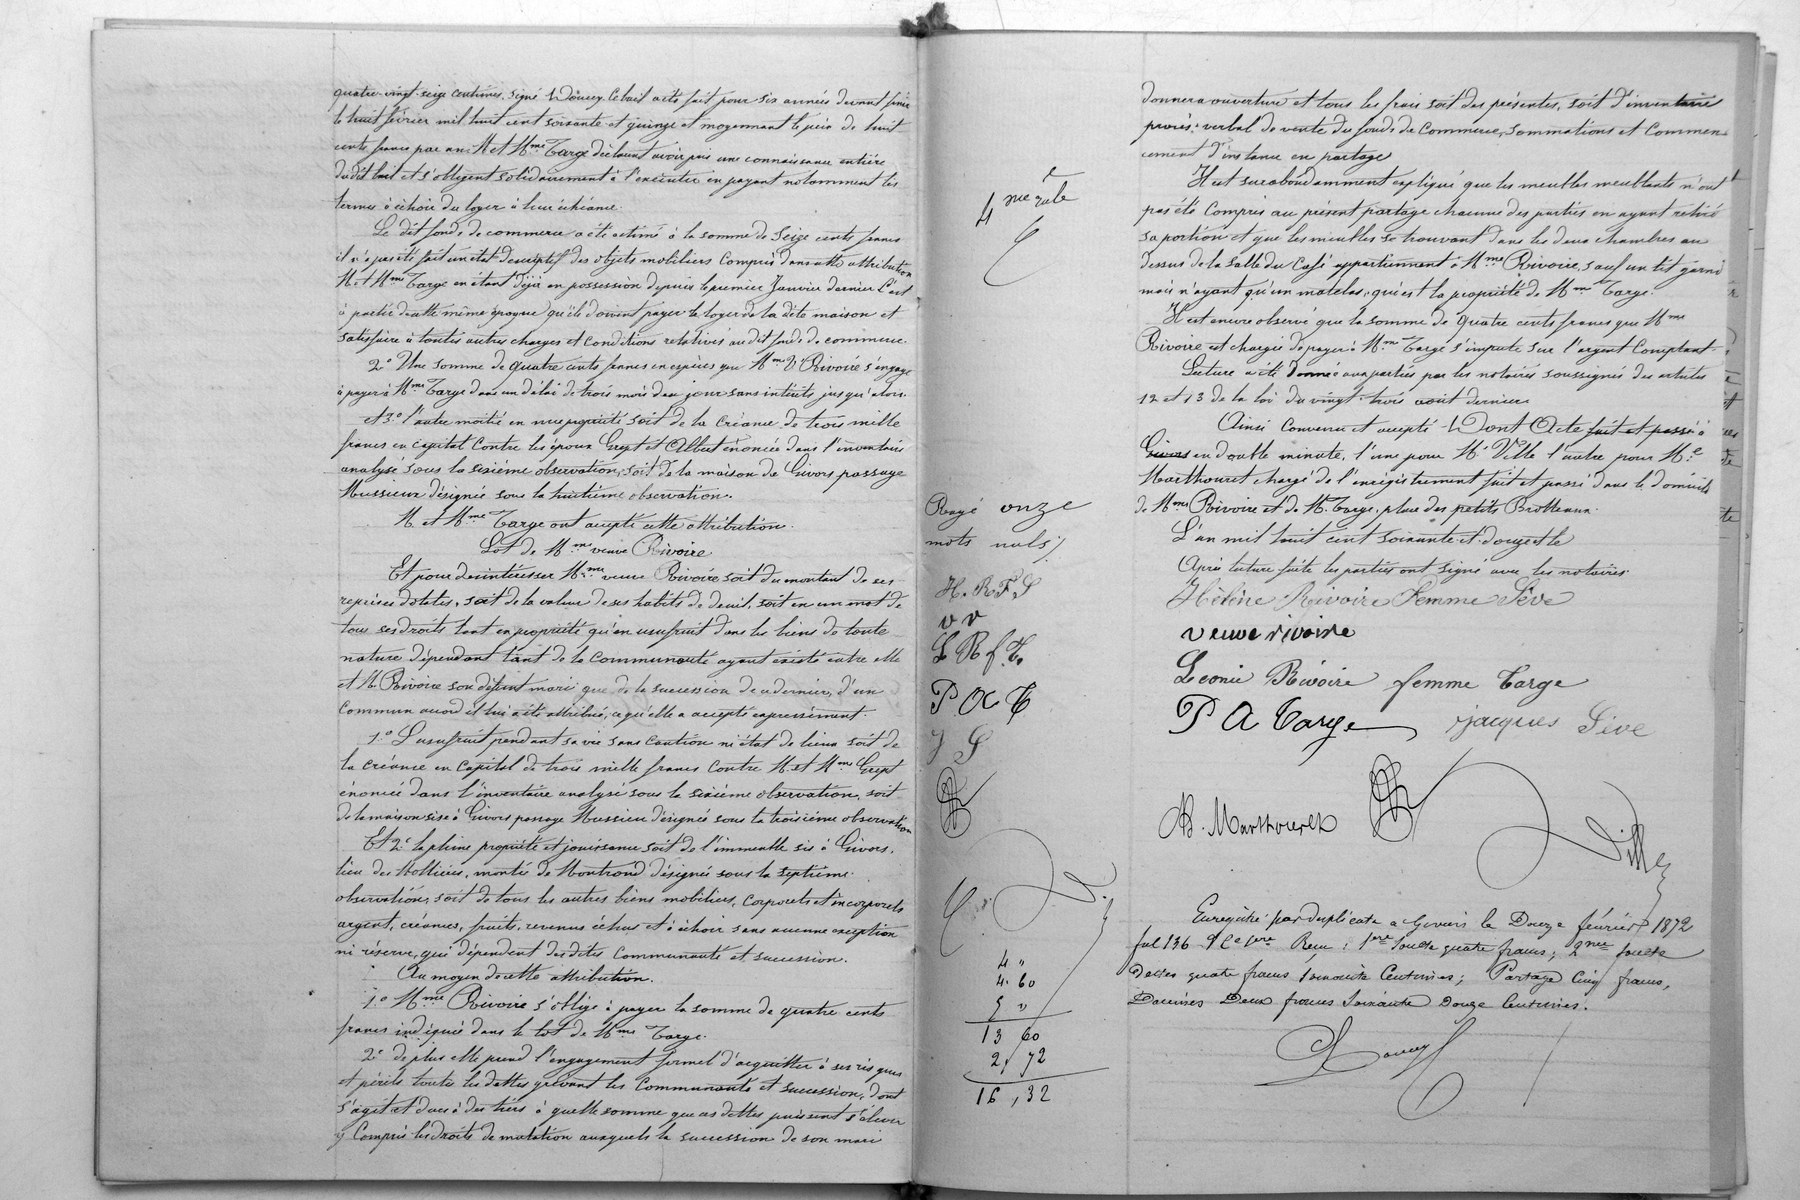 quatre-vingt-seize centimes, signé Doucey. Ce bail a été fait pour six années devant finir
le huit février mil huit cent soixante et quinze et moyennant le prix de huit
cents francs par an. M et Mme Targe déclarent avoir pris une connaissance entière
du dit bail et s'obligent solidairement à l'exécuter en payant notamment les
termes à échoir du loyer à leur échéance.
Le dit fonds de commerce a été estimé à la somme de Seize cents francs
il n'a pas été fait un état descriptif des objets mobiliers compris dans cette attribution
M et Mme Targe en étant déjà en possession depuis le premier Janvier dernier. C'est
à partir de cette même époque qu'ils doivent payer le loyer de la dite maison et
satisfaire à toutes autres charges et conditions relatives au dit fonds de commerce.
2° Une somme de quatre cents francs en espèces que Mme Ve Rivoire s'engage
à payer à Mme Targe dans un délai de trois mois de ce jour sans intérêts jusqu'alors.
et 3° l'autre moitié en nue propriété soit de la créance de trois mille
francs en capital contre les époux Grept et Albert énoncée dans l'inventaire
analysé sous la sixième observation, soit de la maison de Givors passage
Mussieux désignée sous la huitième observation.
M et Mme Targe ont accepté cette attribution.
Lot de Mme veuve Rivoire
Et pour désintéresser Mme veuve Rivoire soit du montant de ses
reprises dotales, soit de la valeur de ses habits de deuil, soit en un mot de
tous ses droits tant en propriété qu'en usufruit dans les biens de toute
nature dépendant tant de la Communauté ayant existé entre elle
et M. Rivoire son défunt mari que de la succession de ce dernier, d'un
commun accord il lui a été attribué, ce qu'elle a accepté expressément.
1° L'usufruit pendant sa vie sans caution ni état de lieux soit de
la créance en capital de trois mille francs contre M. et Mme Grept
énoncée dans l'inventaire analysé sous la sixième observation, soit
de la maison sise à Givors passage Mussieu désignée sous la troisième observation
Et 2° la pleine propriété et jouissance soit de l'immeuble sis à Givors.
lieu des Molliéres, montée de Montrond désignés sous la septième
observation, soit de tous les autres biens mobiliers, corporels et incorporels
argent, créances, fruits, revenus échus et à échoir sans aucune exception
ni réserve, qui dépendent des dites Communauté et succession.
Au moyen de cette attribution.
1° Mme Rivoire s'oblige à payer la somme de quatre cents
francs indiquée dans le lot de Mme Targe.
2° de plus elle prend l'engagement formel d'acquitter à ses risques
et périls toutes les dettes grevant les Communauté et succession, dont
s'agit et dues à des tiers à quelle somme que ces dettes puissent s'élever
y compris les droits de mutation auxquels la succession de son mari
4me rôle
Rayé onze
mots nuls
H. R. F. S
v v
L R f. T.
P. A T
J S
4 "
4. 60
5 "
13 60
2, 72
16, 32
donnera ouverture et tous les frais soit des présentes, soit d'inventaire
procès-verbal de vente du fonds de Commerce, sommations et commen
cement d'instance en partage
Il est surabondamment expliqué que les meubles meublants n'ont
pas été compris au présent partage chacune des parties en ayant retiré
sa portion et que les meubles se trouvant dans les deux chambres au
dessus de la salle du Café appartiennent à Mme Rivoire, sauf un lit garni
mais n'ayant qu'un matelas, qui est la propriété de Mme Targe.
Il est encore observé que la somme de quatre cents francs que Mme
Rivoire est chargée de payer à Mme Targe s'impute sur l'argent Comptant.
Lecture a été donnée aux parties par les notaires soussignés des articles
12 et 13 de la loi du vingt-trois août dernier
Ainsi convenu et accepté Dont Acte fait et passé à
Givors en double minute, l'une pour Me Ville l'autre pour Me
Marthouret chargé de l'enregistrement fait et passé dans le domicile
de Mme Rivoire et de M. Targe, place des petits Brotteaux.
L'an mil huit cent soixante et douze et le
Après lecture faite les parties ont signé avec les notaires
Hélène Rivoire Femme Sève
veuve rivoire
Leonie Rivoire femme Targe
P A Targe jacques Sève
Marthouret
Ville
Enregistré par duplicata a Givors le Douze février 1872
fol 136 Rle 1ere Recu : 1ere Soulte quatre francs, 2me soulte
quatre francs soixante Centimes; Partage Cinq francs,
Décimes Deux francs soixante Douze Centimes.
Doucey